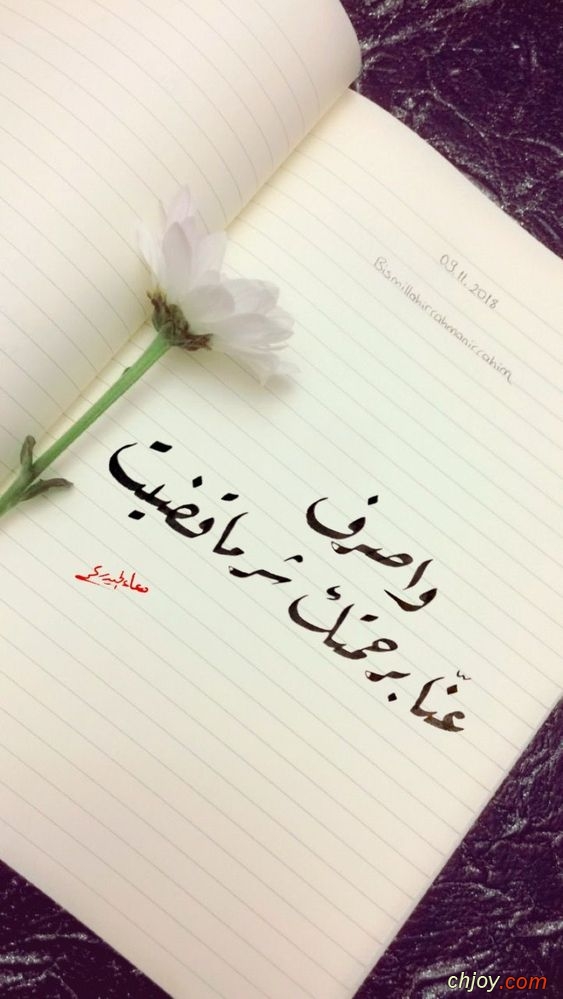 09.11.2018
Bismillahirrahmanirrahim
واصرف
عنّا برحمتك شر ما قضيت
chjoy.com